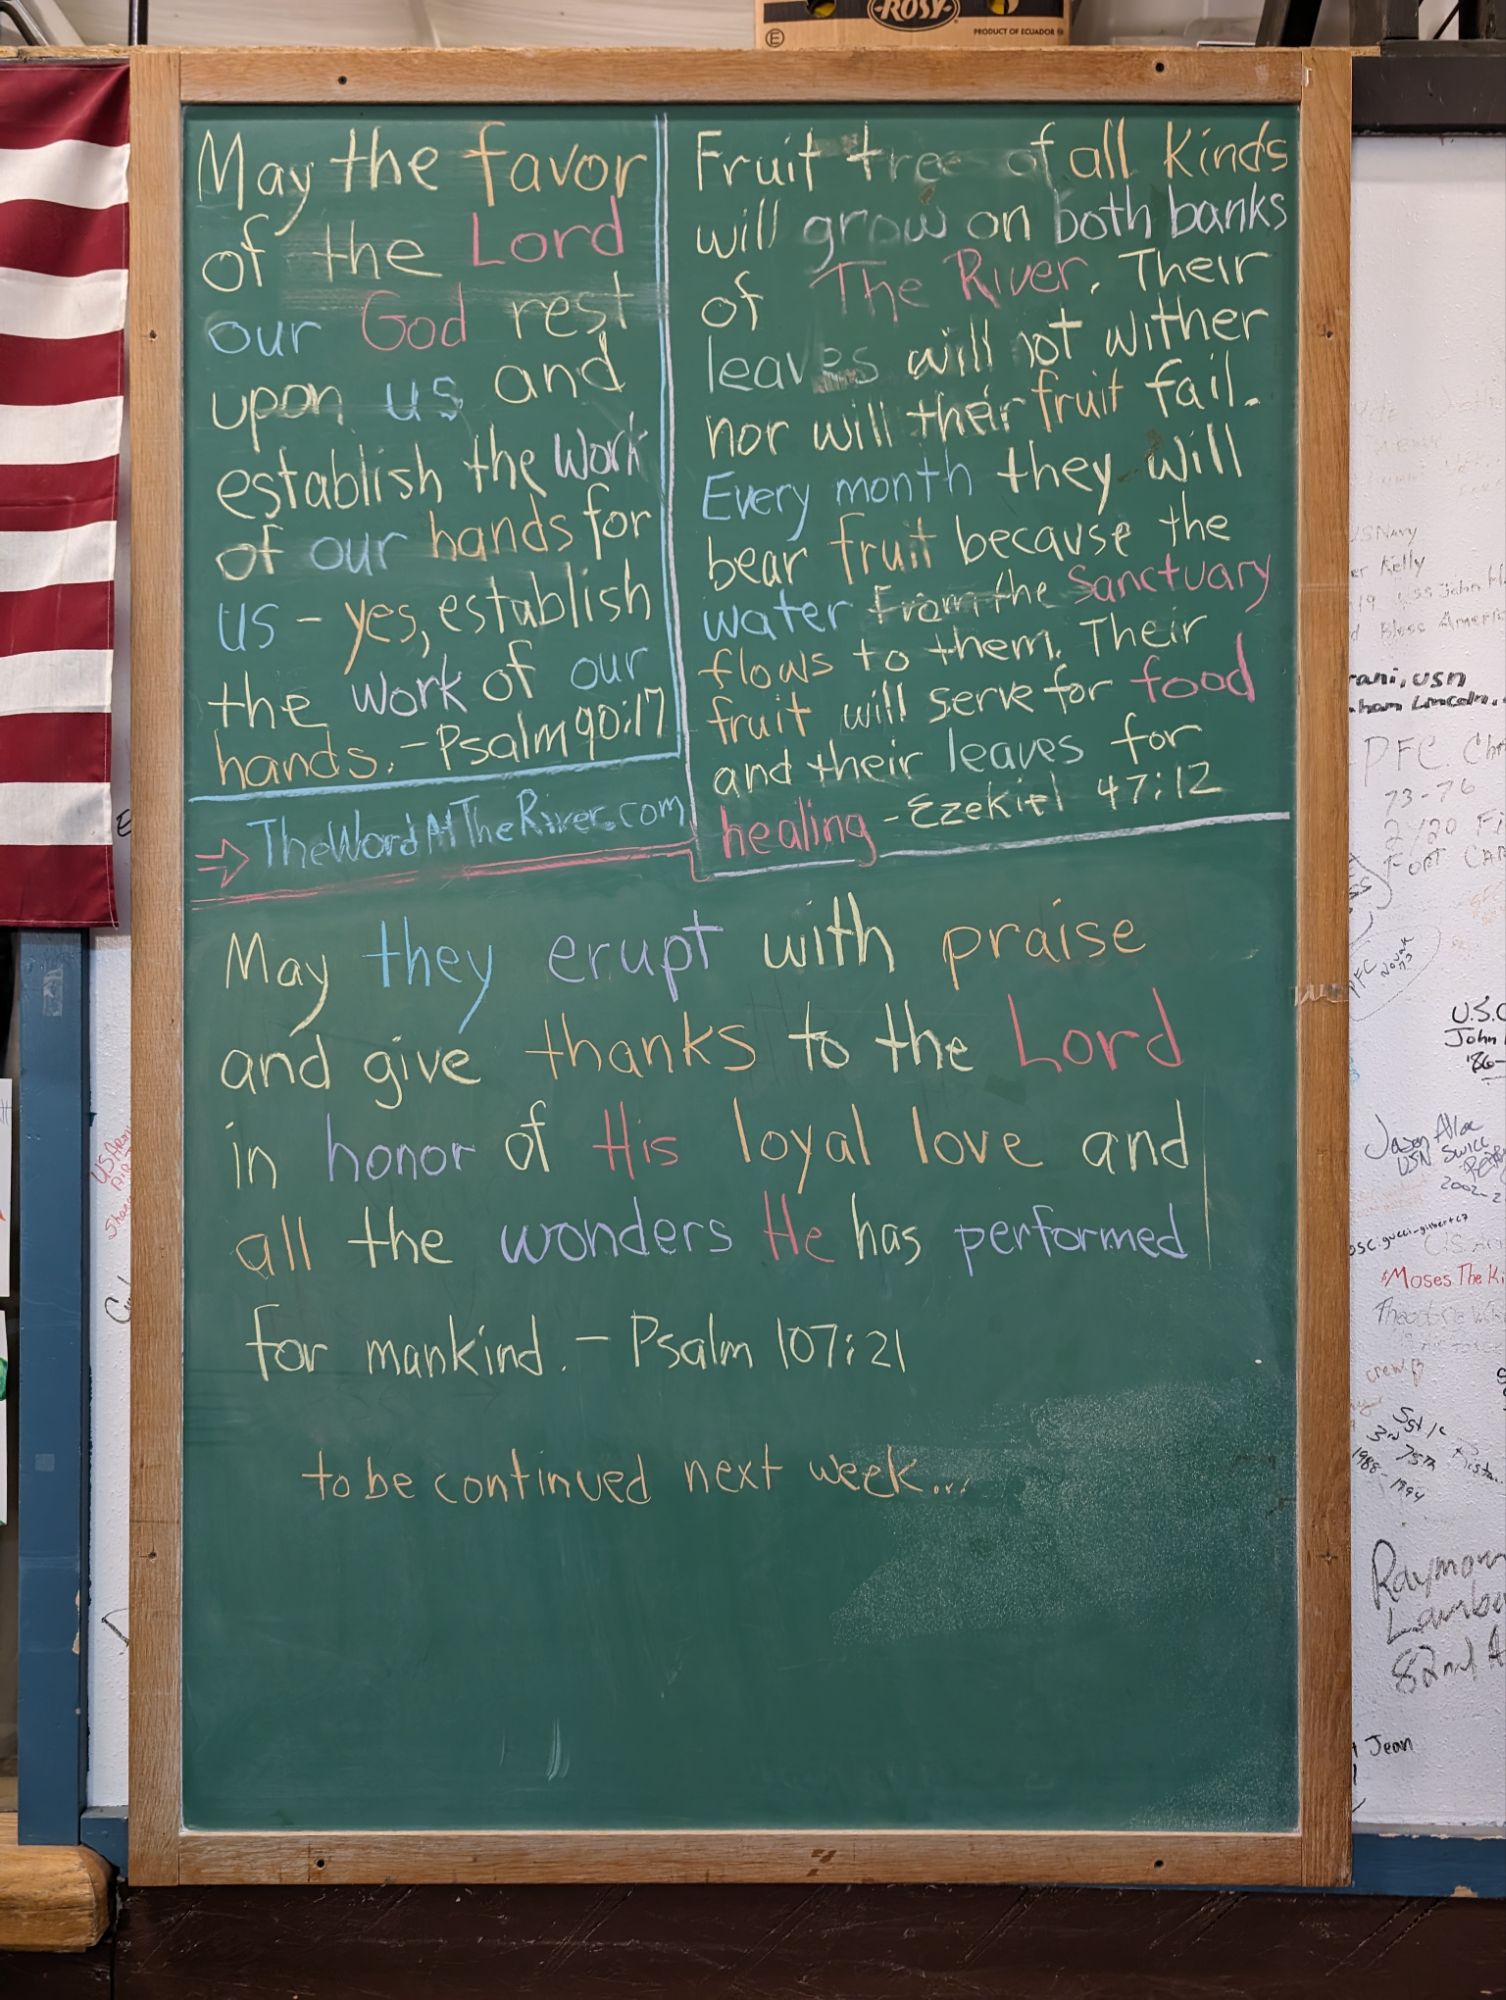 ROSY
PRODUCT OF ECUADOR
May the favor
of the Lord
our God rest
upon us and
establish the work
of our hands for
us - yes, establish
the work of our
hands. - Psalm 90:17
→ TheWordAtTheRiver.com
Fruit trees of all Kinds
will grow on both banks
of The River. Their
leaves will not wither
nor will their fruit fail.
Every month they will
bear fruit because the
water from the Sanctuary
flows to them. Their
fruit will serve for food
and their leaves for
healing - Ezekiel 47:12
May they erupt with praise
and give thanks to the Lord
in honor of His loyal love and
all the wonders He has performed
for mankind. - Psalm 107:21
to be continued next week...
Kelly
Bless
USN
Lincoln
PFC.
73-76
PFC
John
'86-
Jason
USN
#Moses The
crew
1988-
1994
82nd
Jean